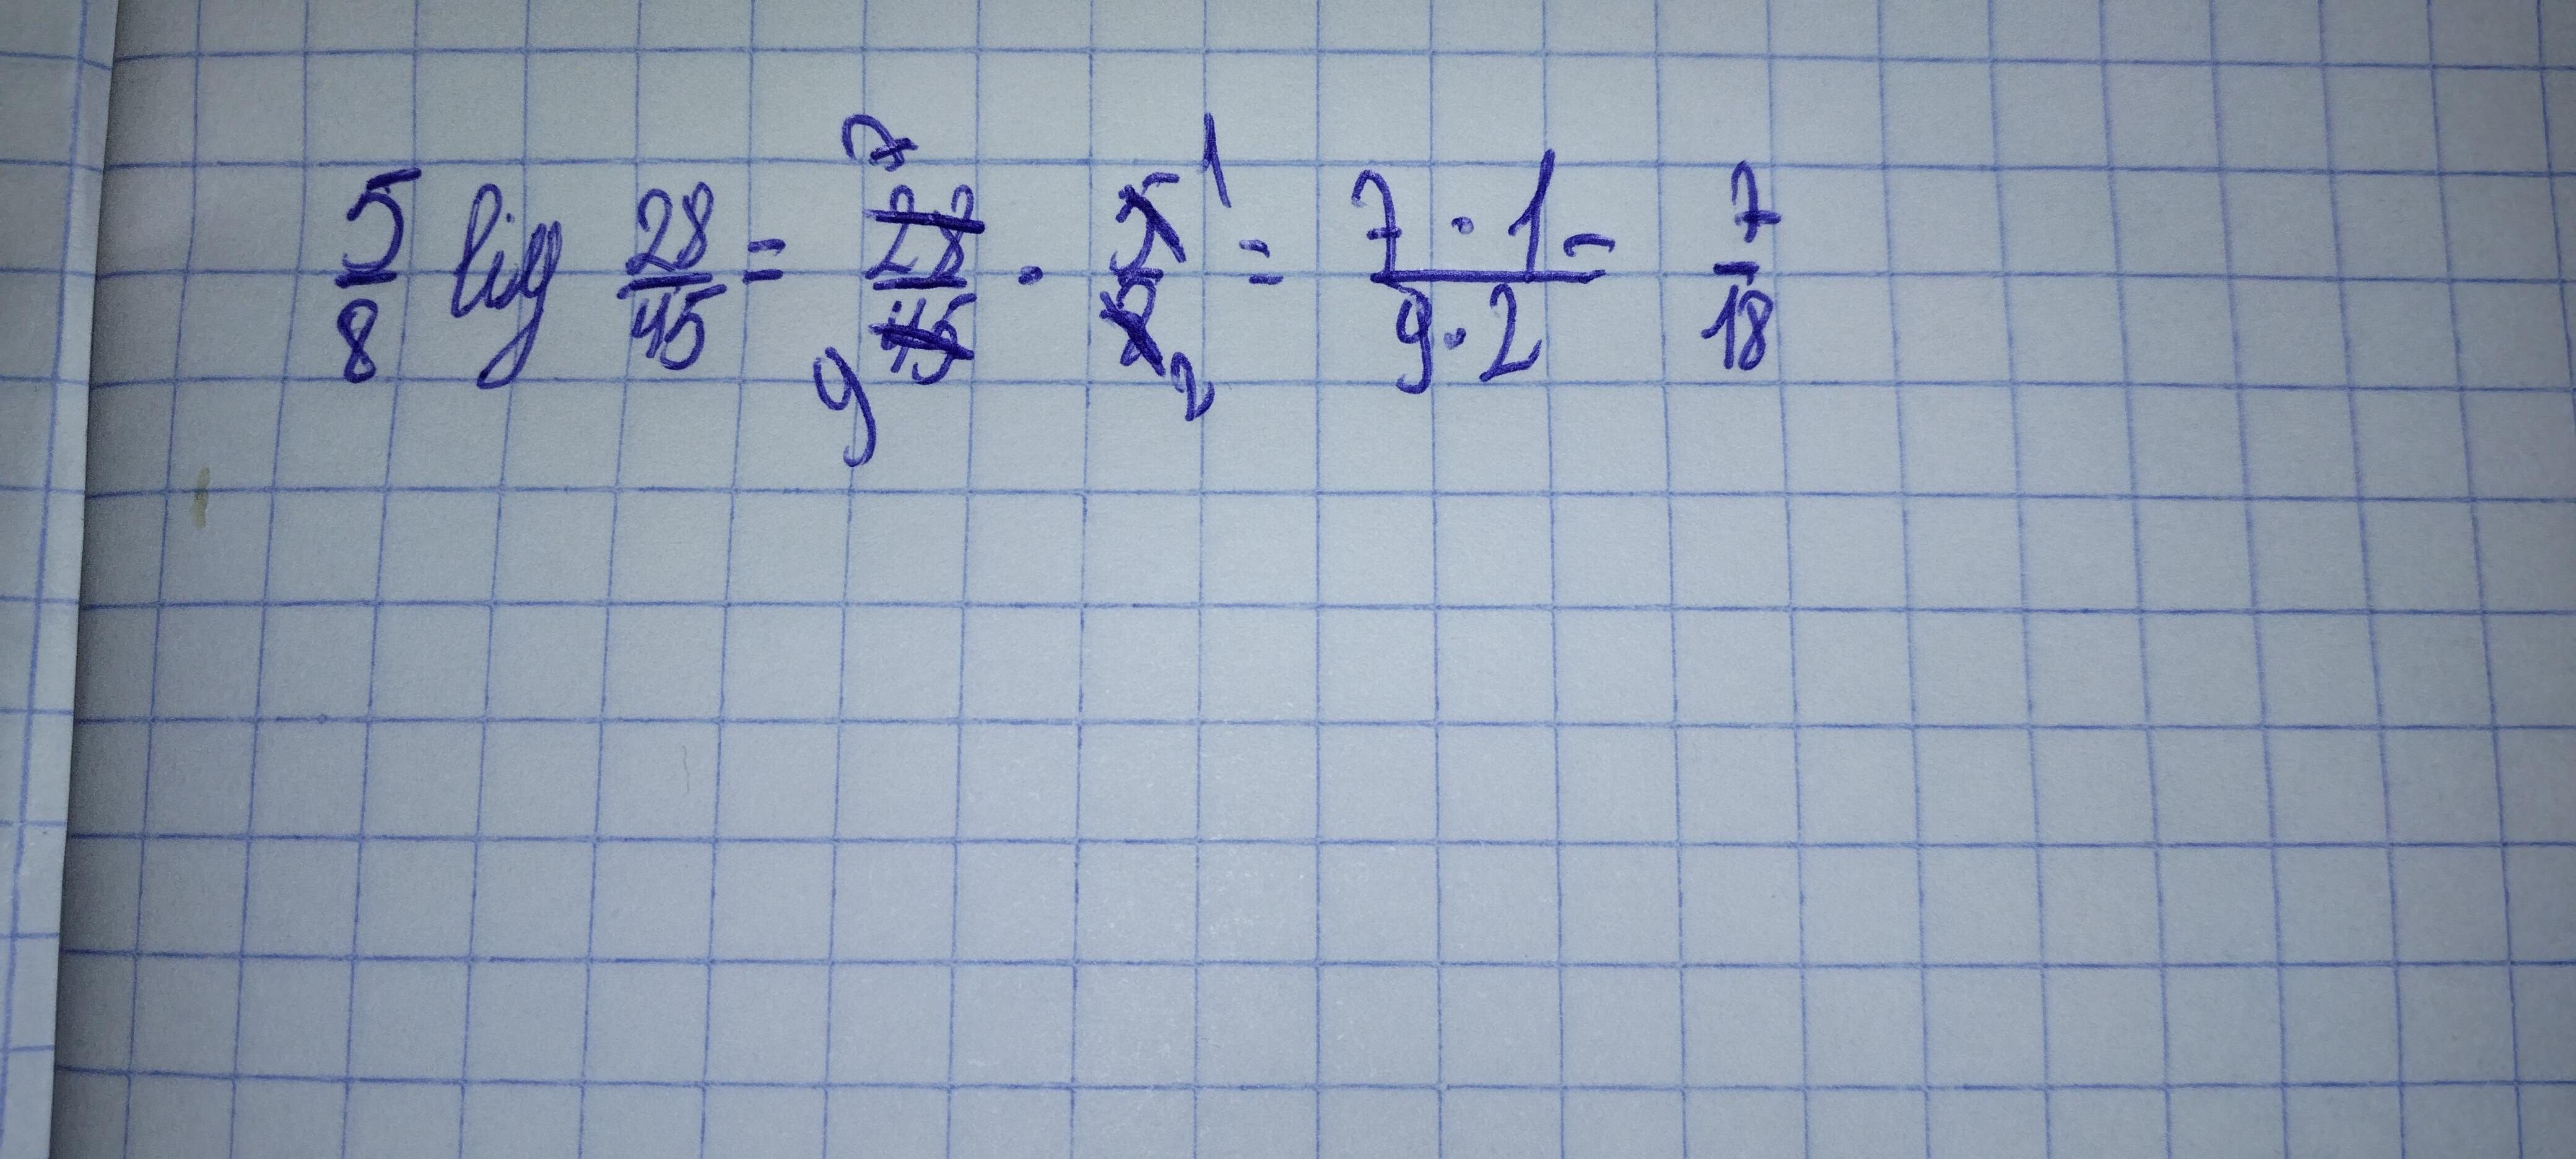 5/8 lig 28/45 = 28/45 7 9 · 5/8 1 2 = 7 · 1 / 9 · 2 = 7/18